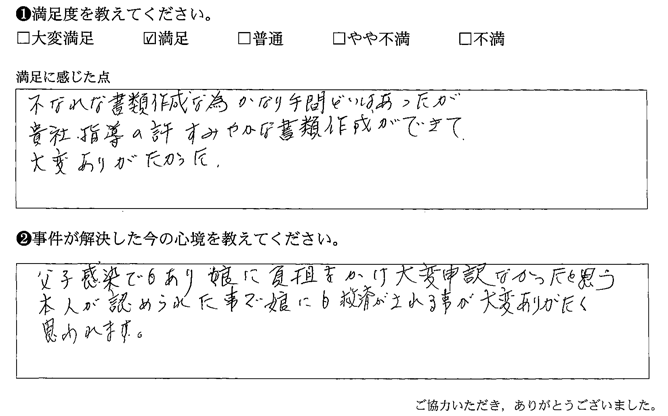 ❶満足度を教えてください。
□大変満足 ☑満足 □普通 □やや不満 □不満
満足に感じた点
不なれな書類作成な為 かなり手間どいはあったが
貴社.指導の許 すみやかな書類作成ができて
大変ありがたかった.
❷事件が解決した今の心境を教えてください。
父子感染でもあり 娘に負担をかけ大変申訳なかったと思う
本人が認められた事で娘にも救済がされる事が大変ありがたく
思われます。
ご協力いただき，ありがとうございました。